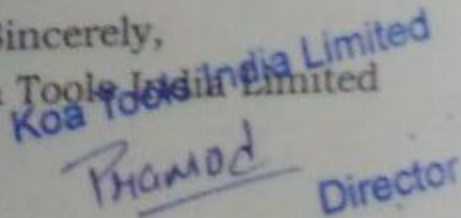 Sincerely,
Koa Tools India Limited
Tools India Limited
Pramod
Director